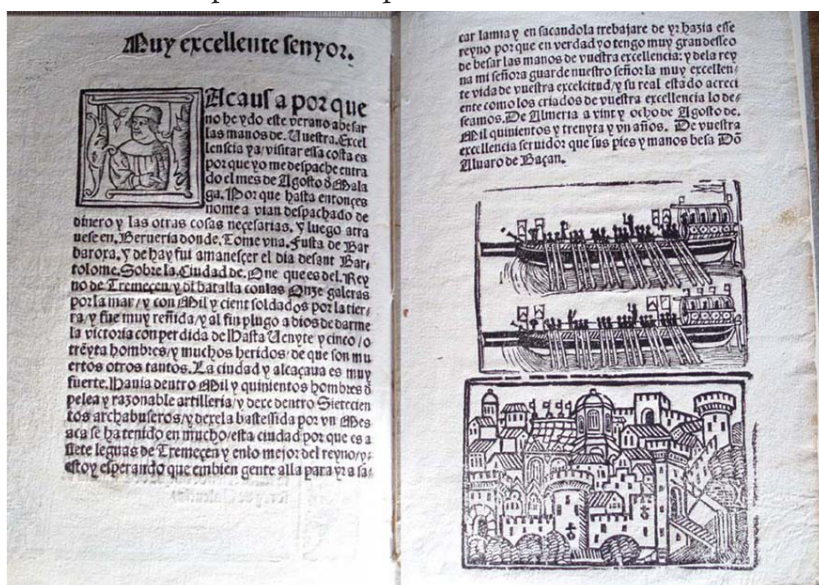 Muy excellente senyor.
La causa por que
no he ydo este verano abesar
las manos de. Vuestra. Excel
lenscia ya/visitar essa costa es
por que yo me despache entra
do el mes de Agosto d Mala
ga. Por que hasta entonçes
nome a vian despachado de
dinero y las otras cosas neçesarias, y luego atra
uese en, Berueria donde, Tome vna, fusta de Bar
baroxa, y de hay fui amanesçer el dia desant Bar,
tolome, Sobre la, Ciudad de, One que es del, Rey
no de Tremeçen y di batalla con las Onze galeras
por la mar/y con Mil y cient soldados por la tier,
ra/y fue muy reñida/y al fin plugo a dios de darme
la victoria con perdida de Hasta Uenyte y cinco/o
treyta hombres/y muchos heridos/de que son mu
ertos otros tantos. La ciudad y alcaçaua es muy
fuerte. Hauia dentro Mil y quinientos hombres d
pelea y razonable artilleria/y dece dentro Sietecien
tos archabuseros/y dexela bastessida por vn Mes
aca se ha tenido en mucho/esta ciudad por que es a
siete leguas de Tremeçen y enlo mejor del reyno/y,
estoy esperando que embien gente alla para yr a sa,
car lamia y en sacandola trabajare de yr hazia esse
reyno por que en verdad yo tengo muy gran desseo
de besar las manos de vuestra excellencia: y dela rey
na mi señora guarde nuestro señor la muy excellen,
te vida de vuestra excelcitud/y su real estado acreci
ente como los criados de vuestra excellencia lo de,
seamos, De Almeria a vint y ocho de Agosto de,
Mil quinientos y trenyta y vn años. De vuestra
excellencia seruidor que sus pies y manos besa Dō
Aluaro de Baçan,